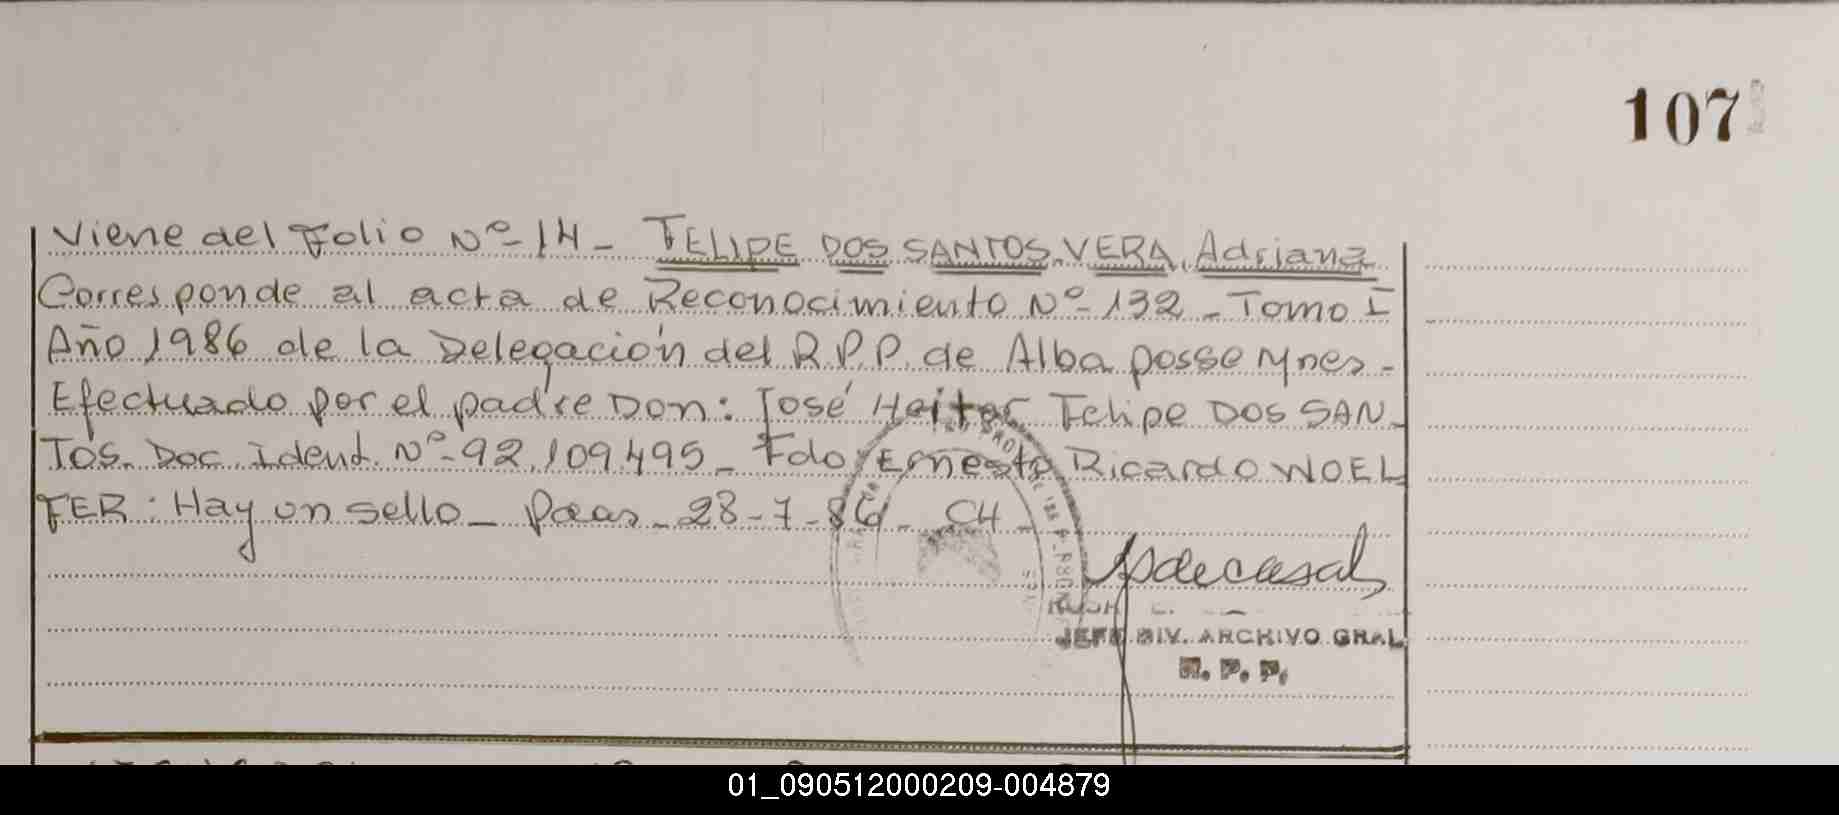 107
Viene del Folio Nº 14 - FELIPE DOS SANTOS VERA, Adriana
Corresponde al acta de Reconocimiento Nº 132 - Tomo I
Año 1986 de la Delegación del R.P.P. de Alba posse Mnes -
Efectuado por el padre Don: José Heitor Felipe DOS SAN-
TOS. Doc. Ident. Nº 92.109.495 - Fdo Ernesto Ricardo WOEL
FER: Hay un sello - Pdas - 28-7-86 - CH -
JEFE DIV. ARCHIVO GRAL
R. P. P.
01_090512000209-004879